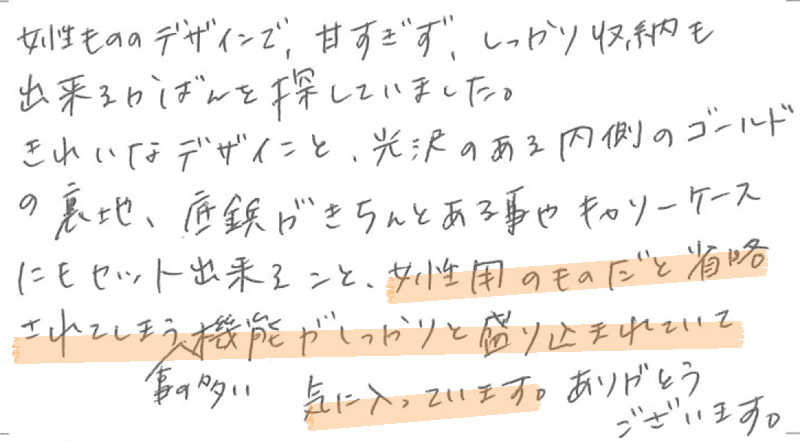 女性もののデザインで、甘すぎず、しっかり収納も
出来るかばんを探していました。
きれいなデザインと、光沢のある内側のゴールド
の裏地、底鋲がきちんとある事やキャリーケース
にもセット出来ること、女性用のものだと省略
されてしまう機能がしっかりと盛り込まれていて
事の多い
気に入っています。ありがとう
ございます。